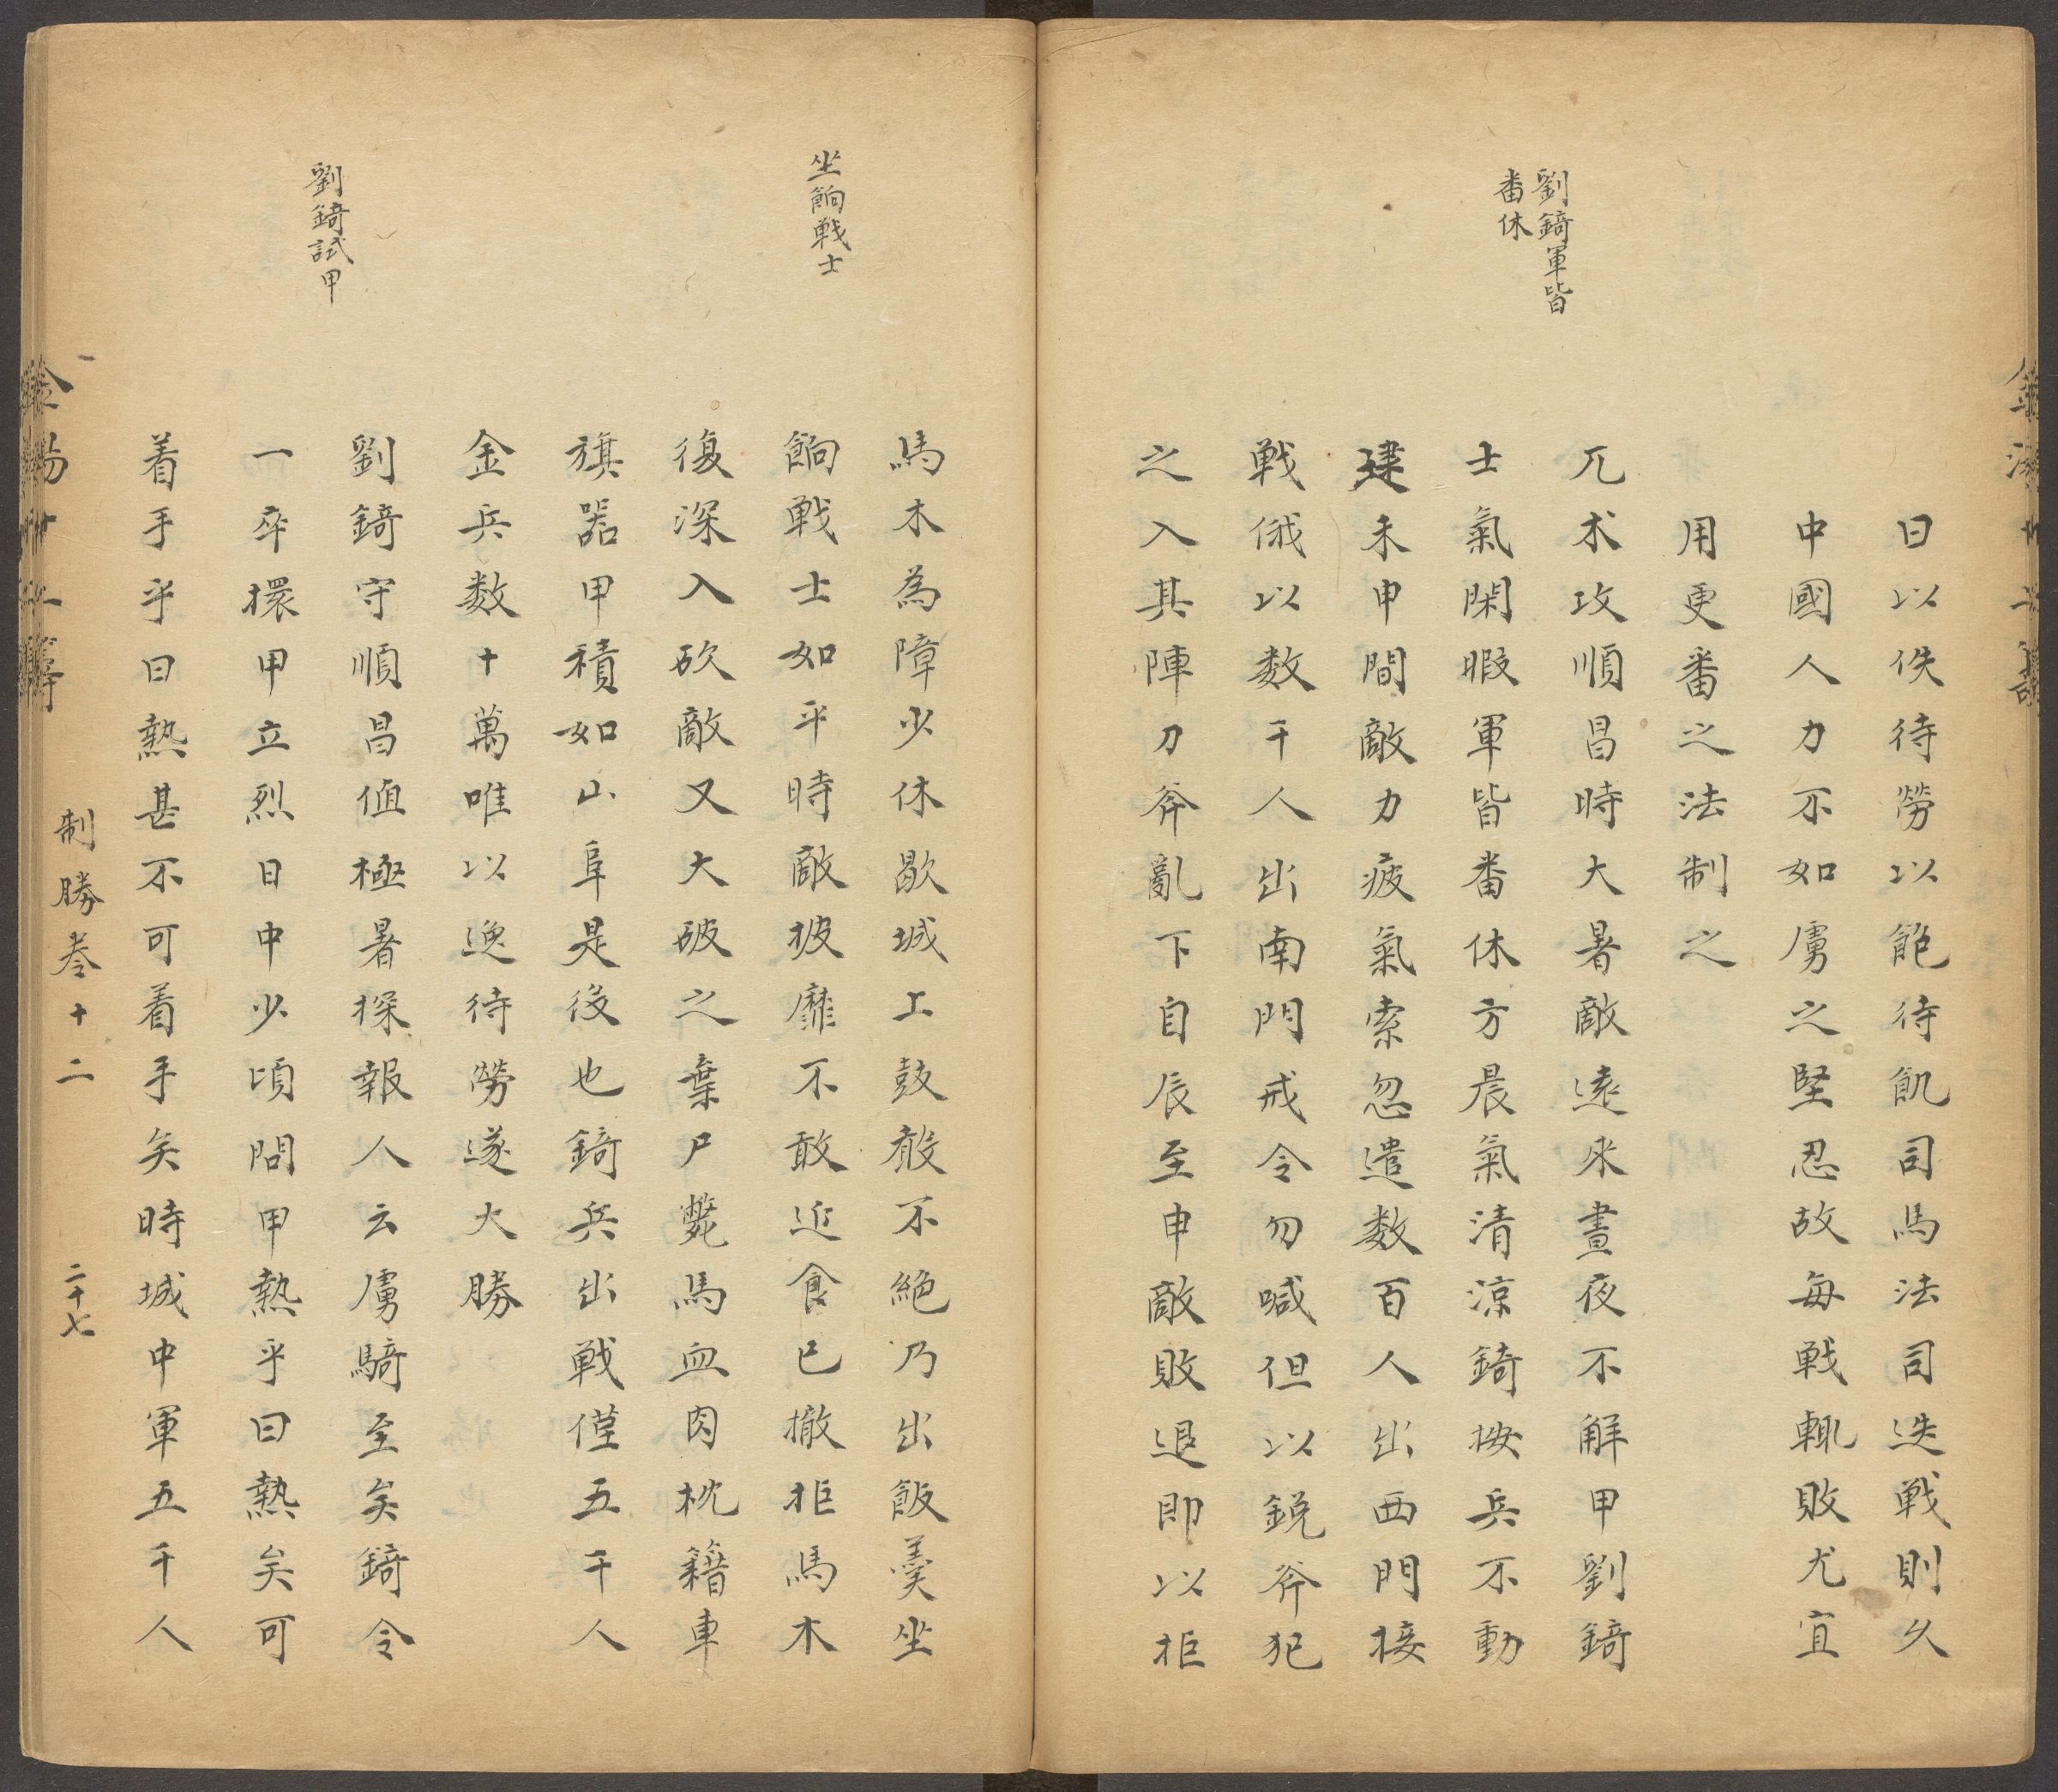 劉錡軍皆
番休
曰以佚待勞以飽待飢司馬法司迭戰則久
中國人力不如虜之堅忍故每戰輒敗尤宜
用更番之法制之
兀术攻順昌時大暑敵遠來晝夜不解甲劉錡
士氣閑暇軍皆番休方晨氣清涼錡按兵不動
逮未申間敵力疲氣索忽遣数百人出西門接
戰俄以数千人出南門戒令勿喊但以銳斧犯
之入其陣刀斧亂下自辰至申敵敗退即以拒
坐餉戰士
劉錡試甲
馬木為障少休歇城上鼓殽不絕乃出飯羹坐
餉戰士如平時敵披靡不敢近食已撤拒馬木
復深入砍敵又大破之棄尸斃馬血肉枕籍車
旗器甲積如山阜是役也錡兵出戰僅五千人
金兵数十萬唯以逸待勞遂大勝
劉錡守順昌值極暑探報人云虜騎至矣錡令
一卒擐甲立烈日中少頃問甲熱乎曰熱矣可
着手乎曰熱甚不可着手矣時城中軍五千人
制勝卷十二 二十七